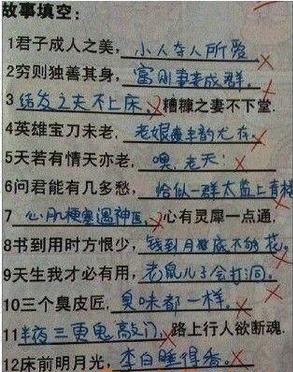 故事填空:
1君子成人之美,小人夺人所爱
2穷则独善其身,富则妻妾成群。
3结发之夫不上床,糟糠之妻不下堂.
4英雄宝刀未老,老娘风韵尤存。
5天若有情天亦老,噢,老天!
6问君能有几多愁,恰似一群太监上青楼
7心肌梗塞遇神医,心有灵犀一点通,
8书到用时方恨少,钱到月底不够花。
9天生我才必有用,老鼠儿子会打洞。
10三个臭皮匠,臭味都一样。
11半夜三更鬼敲门,路上行人欲断魂.
12床前明月光,李白睡得香。